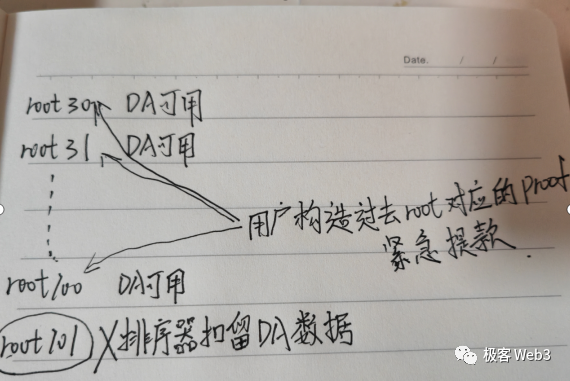 Date. / /
root 30 DA可用
root 31 DA可用
用户构造过去root对应的proof
紧急提款.
root 100 DA可用
root 101 X排序器扣留DA数据
极客Web3